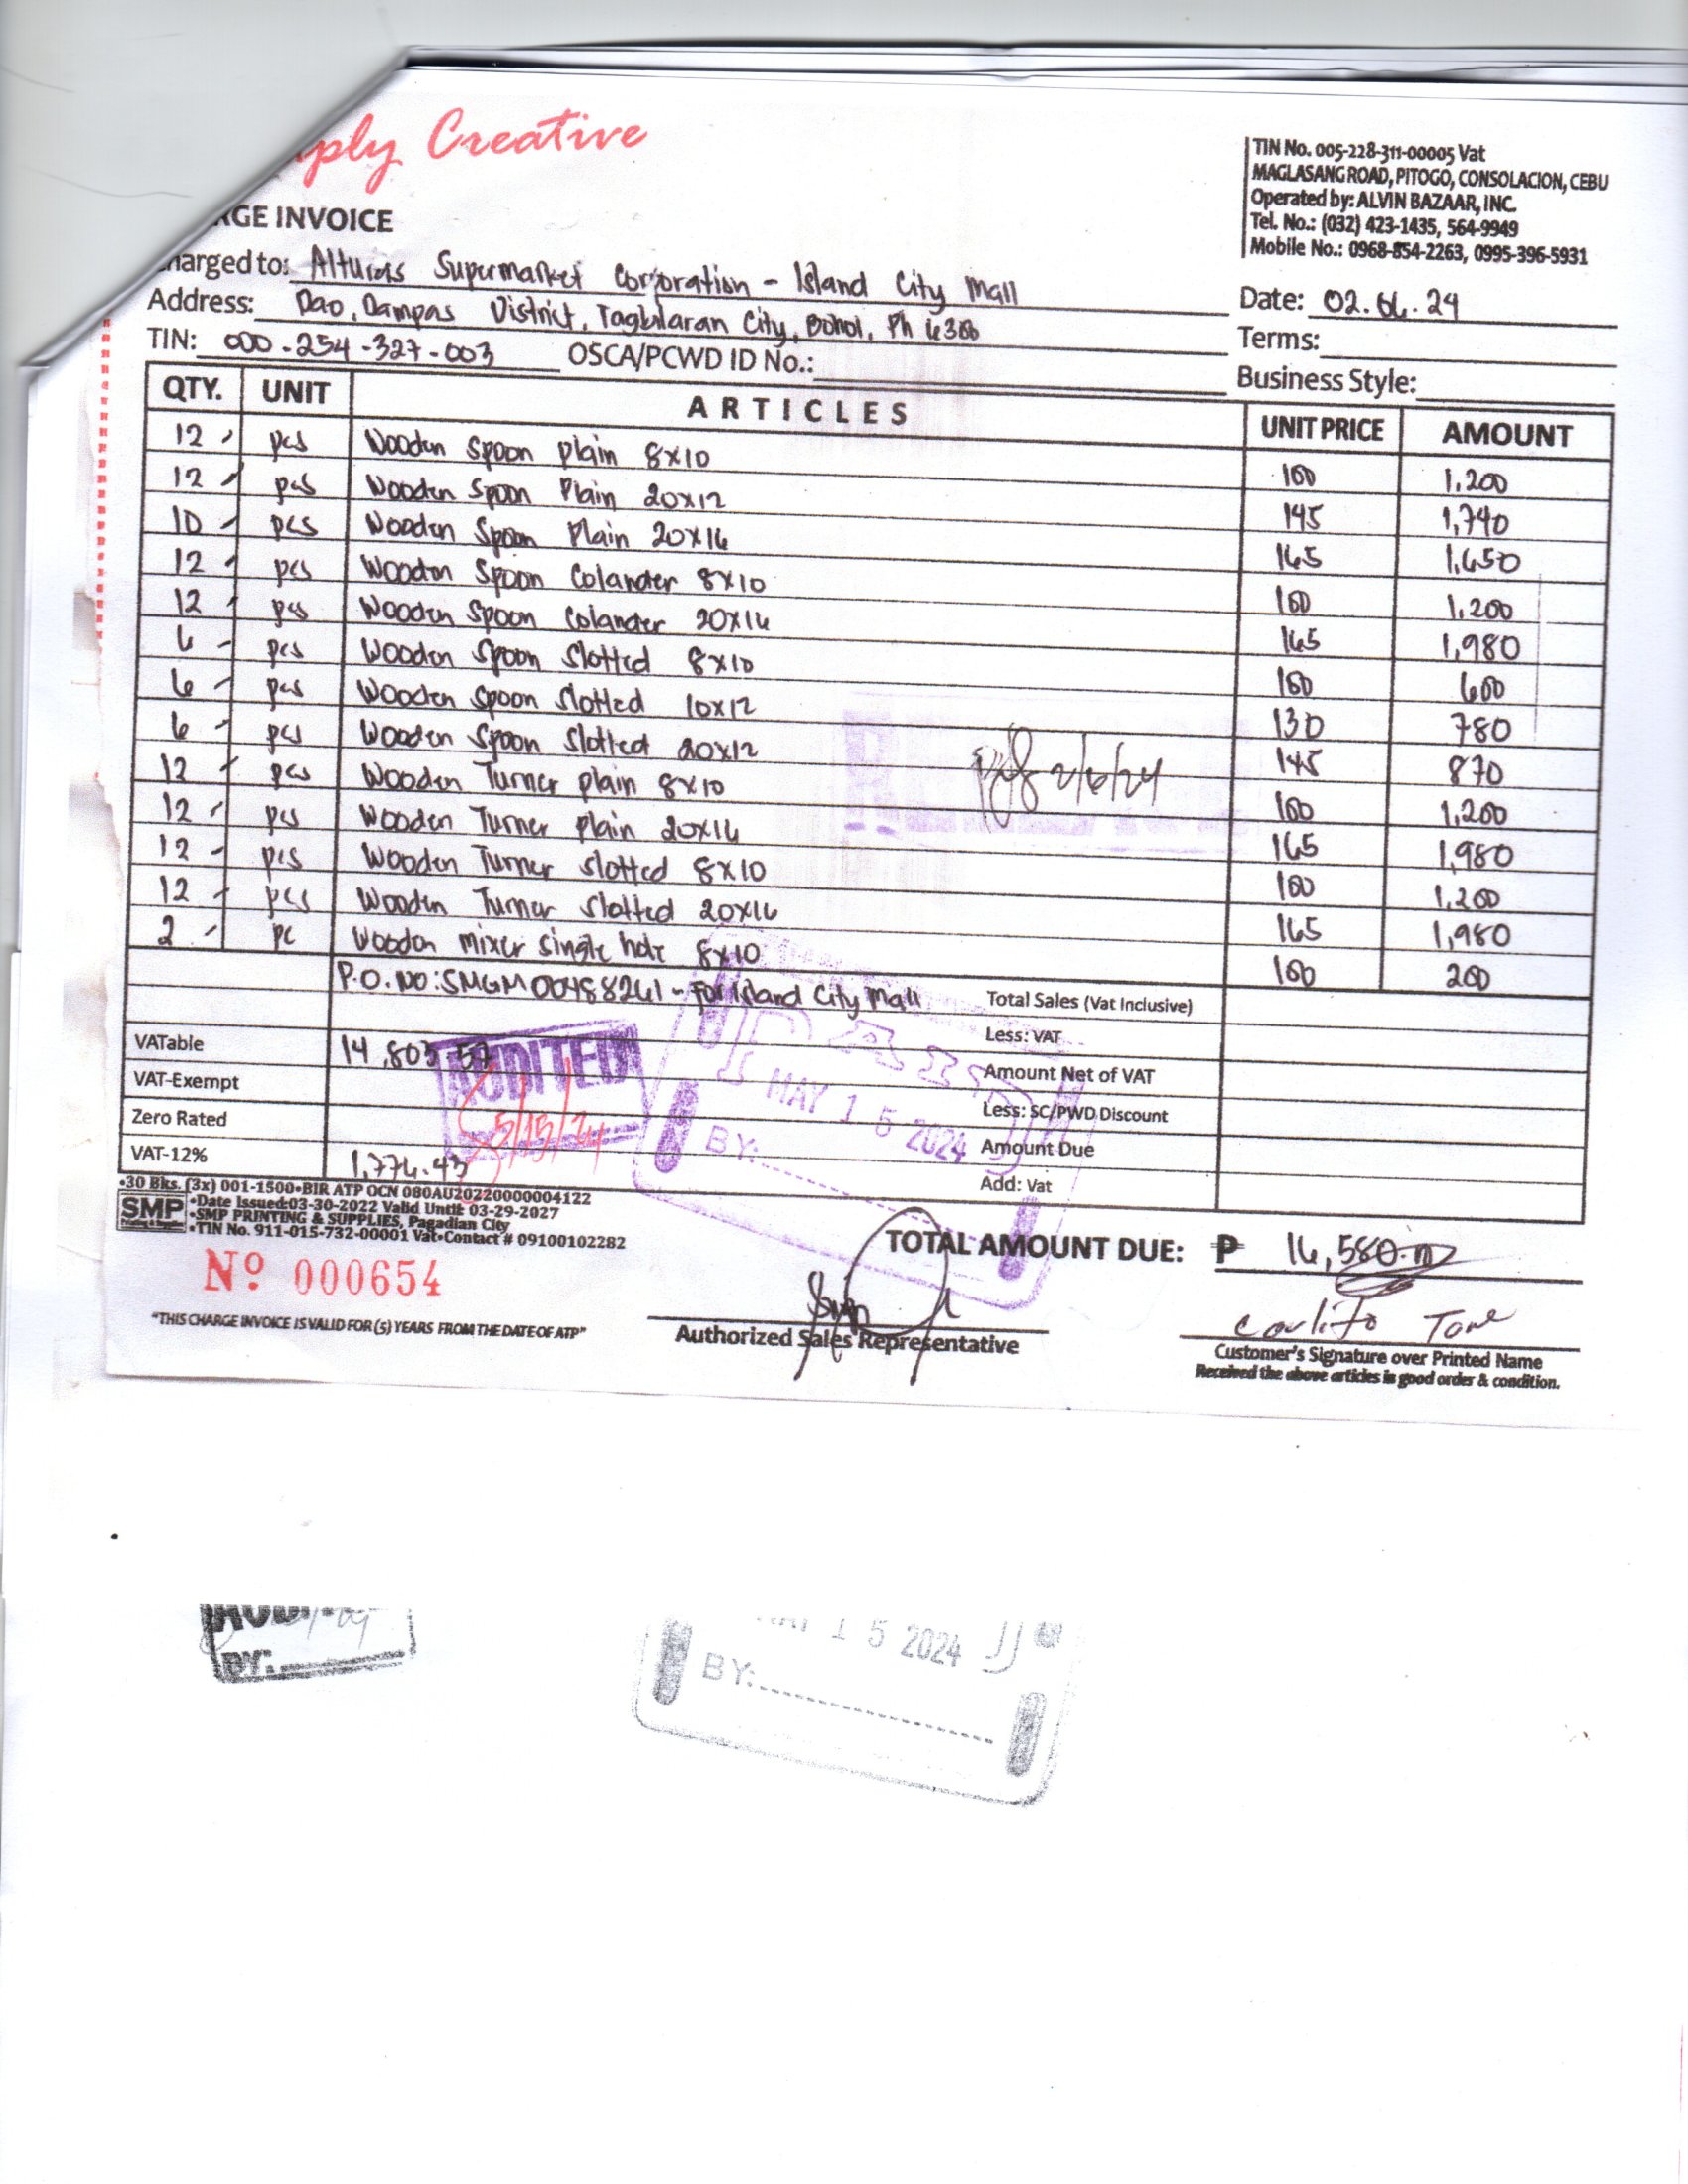 ply Creative
RGE INVOICE
TIN No. 005-228-311-00005 Vat
MAGLASANG ROAD, PITOGO, CONSOLACION, CEBU
Operated by: ALVIN BAZAAR, INC.
Tel. No.: (032) 423-1435, 564-9949
Mobile No.: 0968-854-2263, 0995-396-5931
harged to: Alturas Supermarket Corporation - Island City Mall
Date: 02.06.24
Address: Dao, Dampas District, Tagbilaran City, Bohol, Ph 6300
Terms:
TIN: 000-254-327-003 OSCA/PCWD ID No.:
Business Style:
QTY. UNIT ARTICLES UNIT PRICE AMOUNT
12 pcs Wooden Spoon plain 8x10 100 1,200
12 pcs Wooden Spoon Plain 20x12 145 1,740
10 pcs Wooden Spoon Plain 20x16 165 1,650
12 pcs Wooden Spoon Colander 8x10 100 1,200
12 pcs Wooden Spoon Colander 20x16 165 1,980
6 pcs Wooden Spoon Slotted 8x10 100 600
6 pcs Wooden Spoon Slotted 10x12 130 780
6 pcs Wooden Spoon Slotted 20x12 145 870
12 pcs Wooden Turner plain 8x10 100 1,200
12 pcs Wooden Turner plain 20x16 165 1,980
12 pcs Wooden Turner slotted 8x10 100 1,200
12 pcs Wooden Turner slotted 20x16 165 1,980
2 pc Wooden mixer single hole 8x10 100 200
2/6/24
P.O. NO: SMGM00488261 - For Island City Mall
Total Sales (Vat Inclusive)
Less: VAT
VATable 14,803.57
Amount Net of VAT
VAT-Exempt
Less: SC/PWD Discount
Zero Rated
Amount Due
VAT-12% 1,776.43
Add: Vat
AUDITED
5/15/24
PAID
MAY 15 2024
BY:
•30 Bks. (3x) 001-1500•BIR ATP OCN 080AU20220000004122
•Date Issued:03-30-2022 Valid Until: 03-29-2027
SMP •SMP PRINTING & SUPPLIES, Pagadian City
•TIN No. 911-015-732-00001 Vat•Contact # 09100102282
TOTAL AMOUNT DUE: ₱ 16,580.00
Nº 000654
"THIS CHARGE INVOICE IS VALID FOR (5) YEARS FROM THE DATE OF ATP"
Authorized Sales Representative
Carlito Tone
Customer's Signature over Printed Name
Received the above articles in good order & condition.
BY:
15 2024
BY: